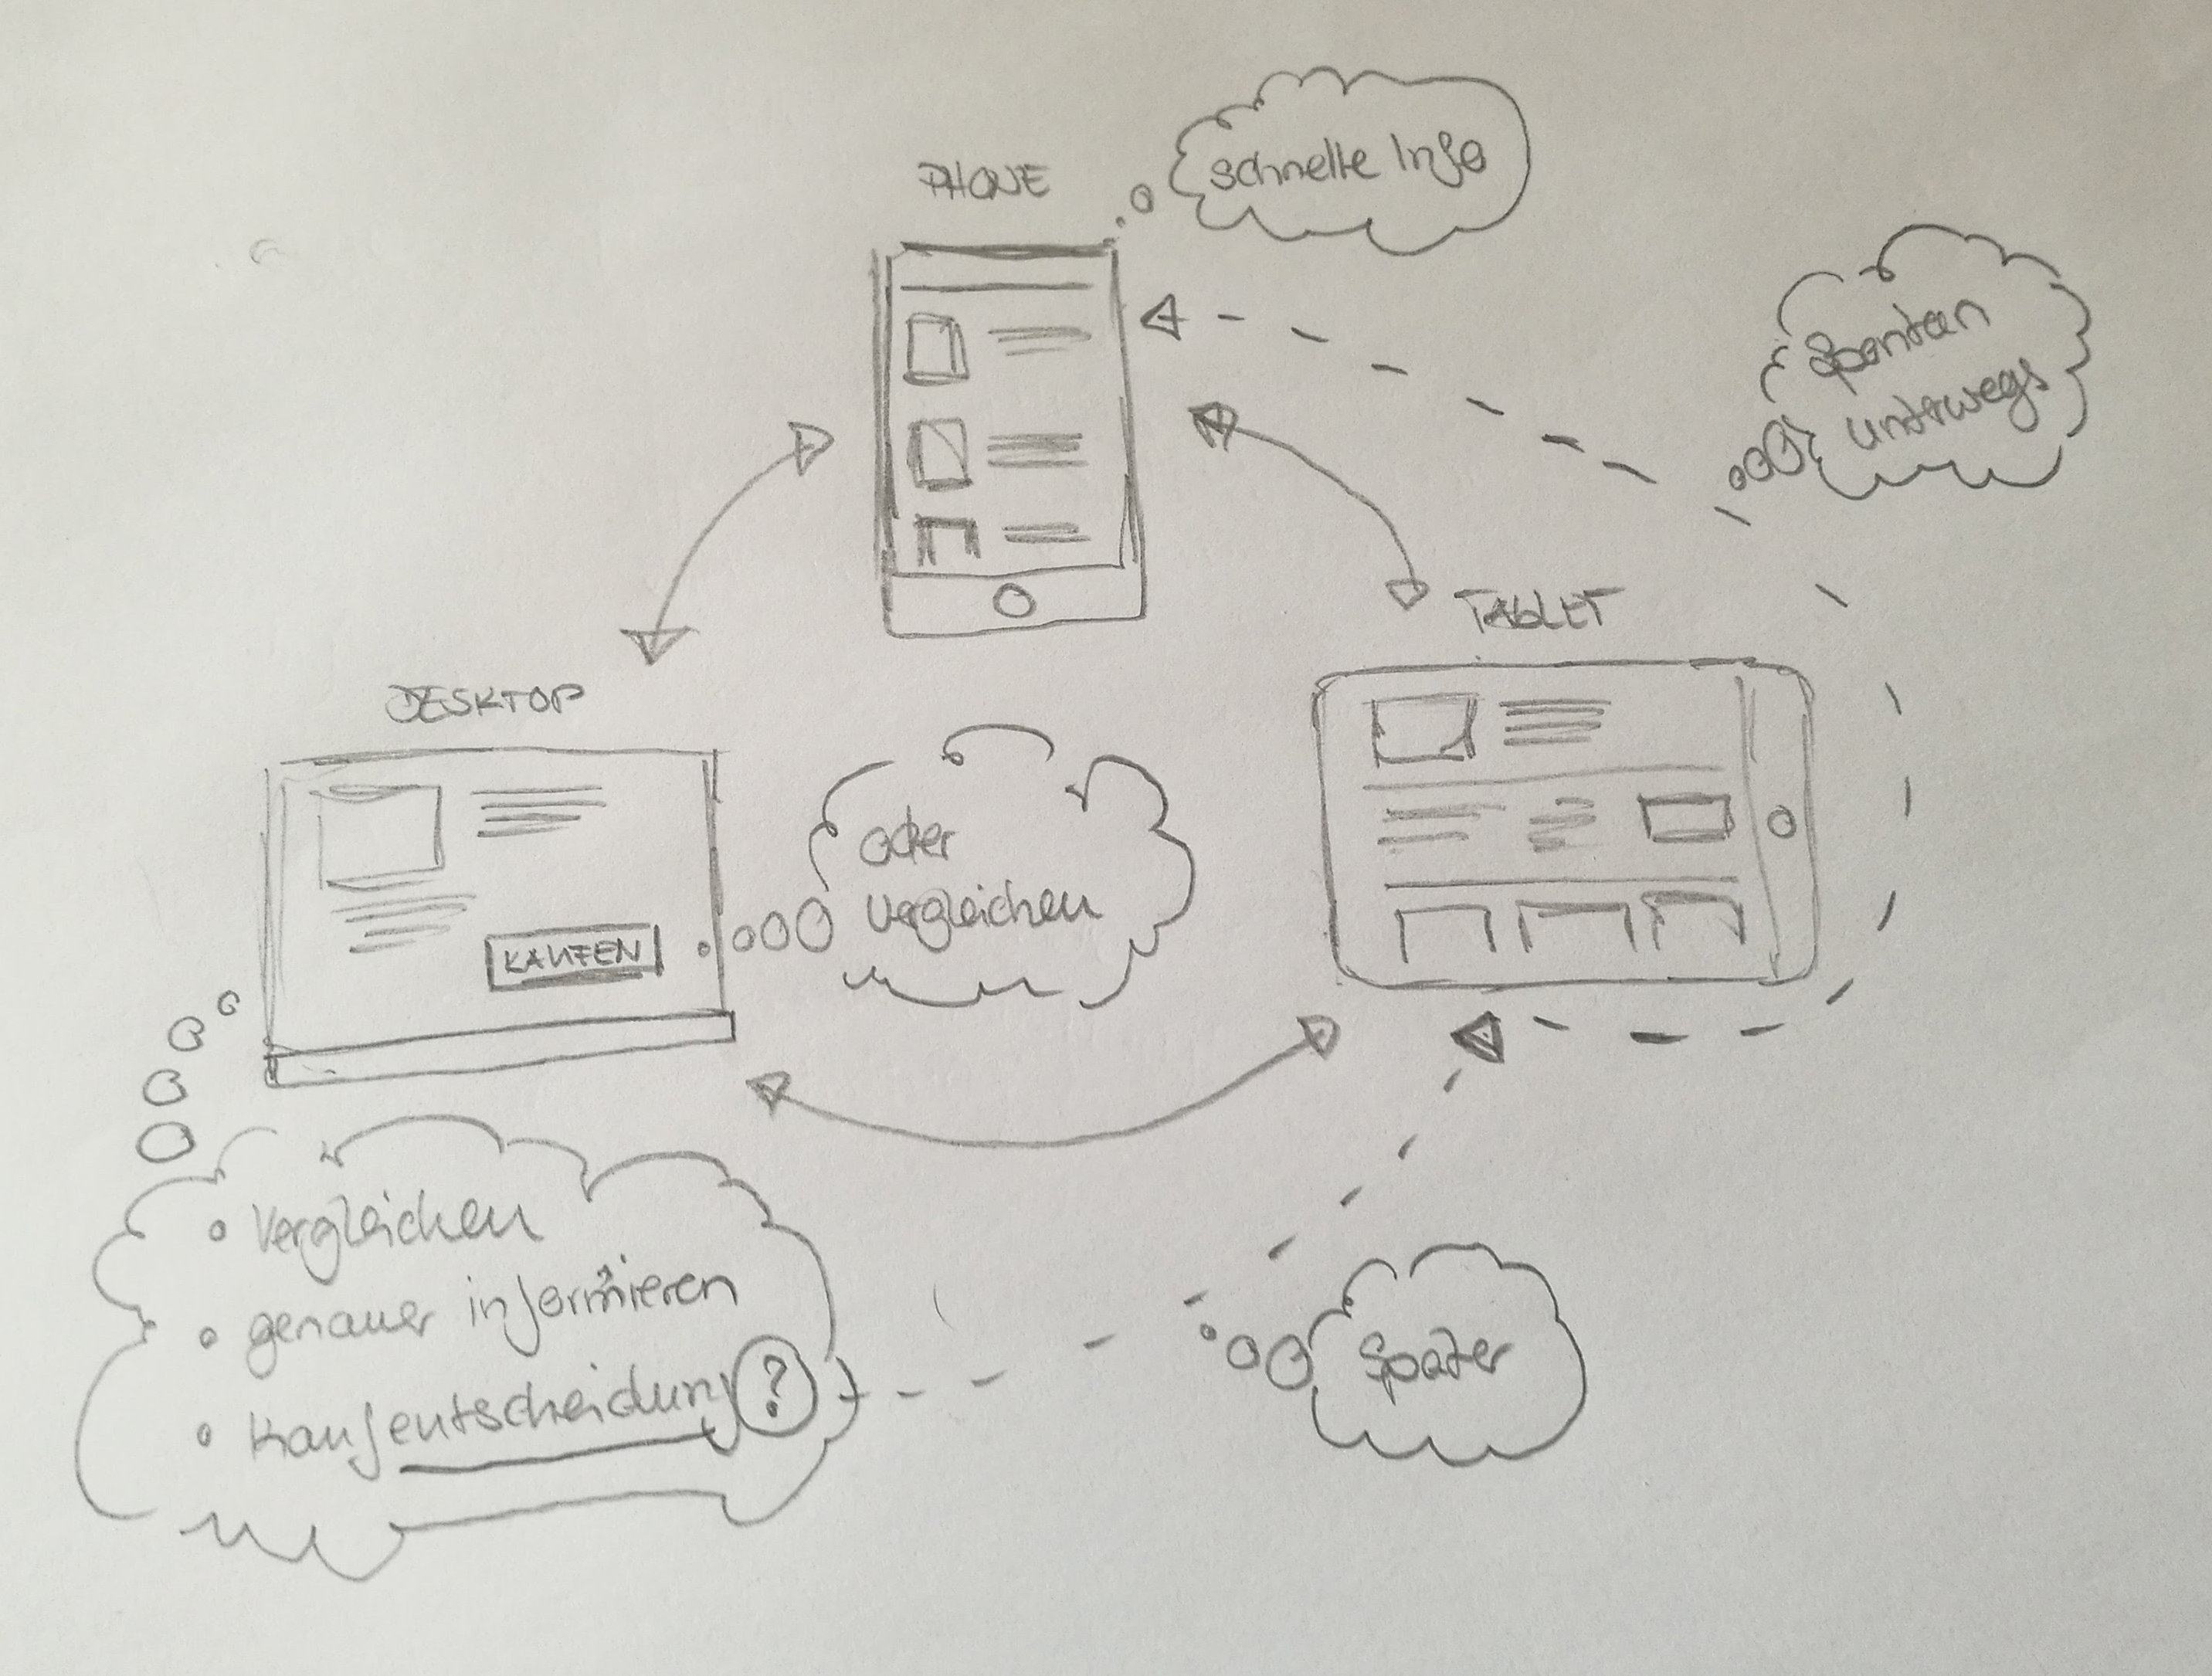 PHONE
schnelle Info
Spontan
unterwegs
TABLET
DESKTOP
KAUFEN
oder
vergleichen
• Vergleichen
• genauer informieren
• Kaufentscheidung ?
später